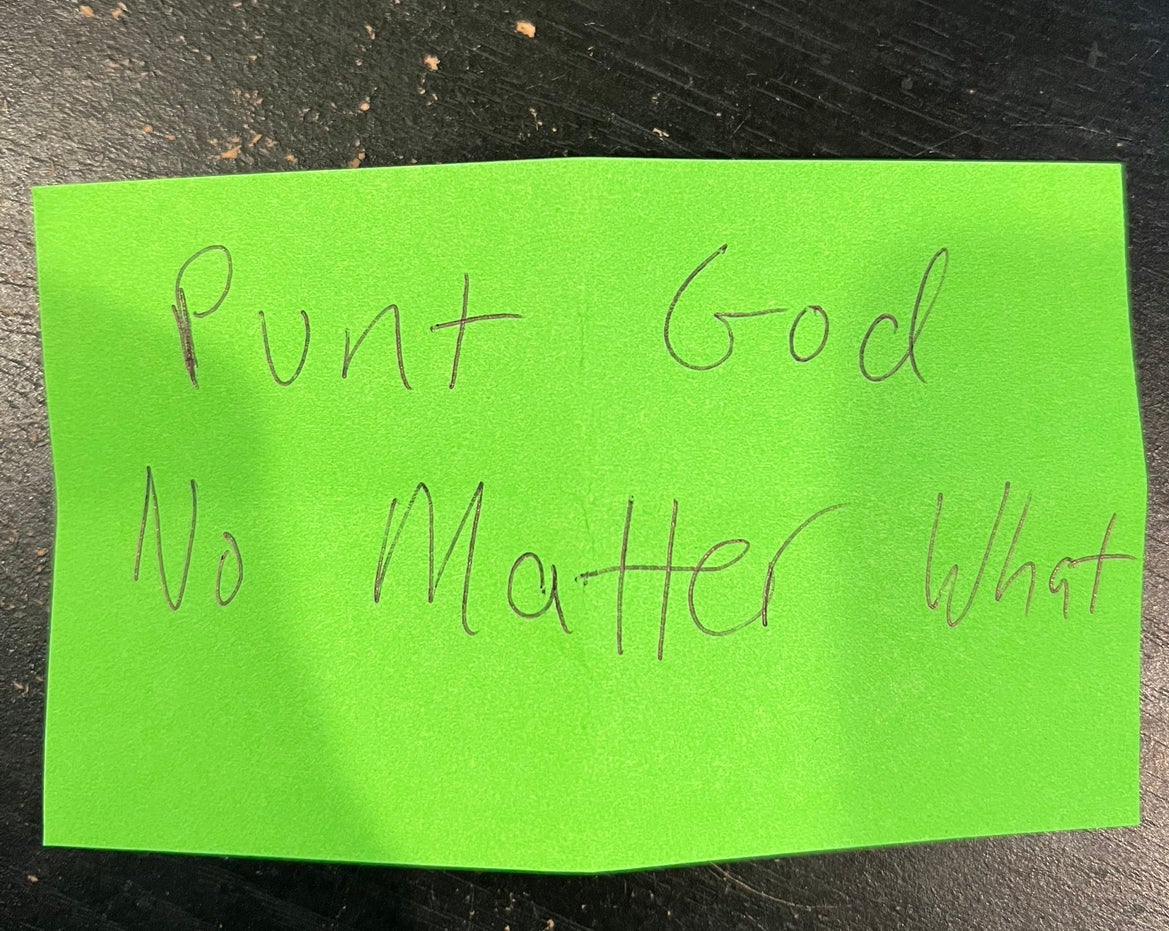 Punt God
No Matter What